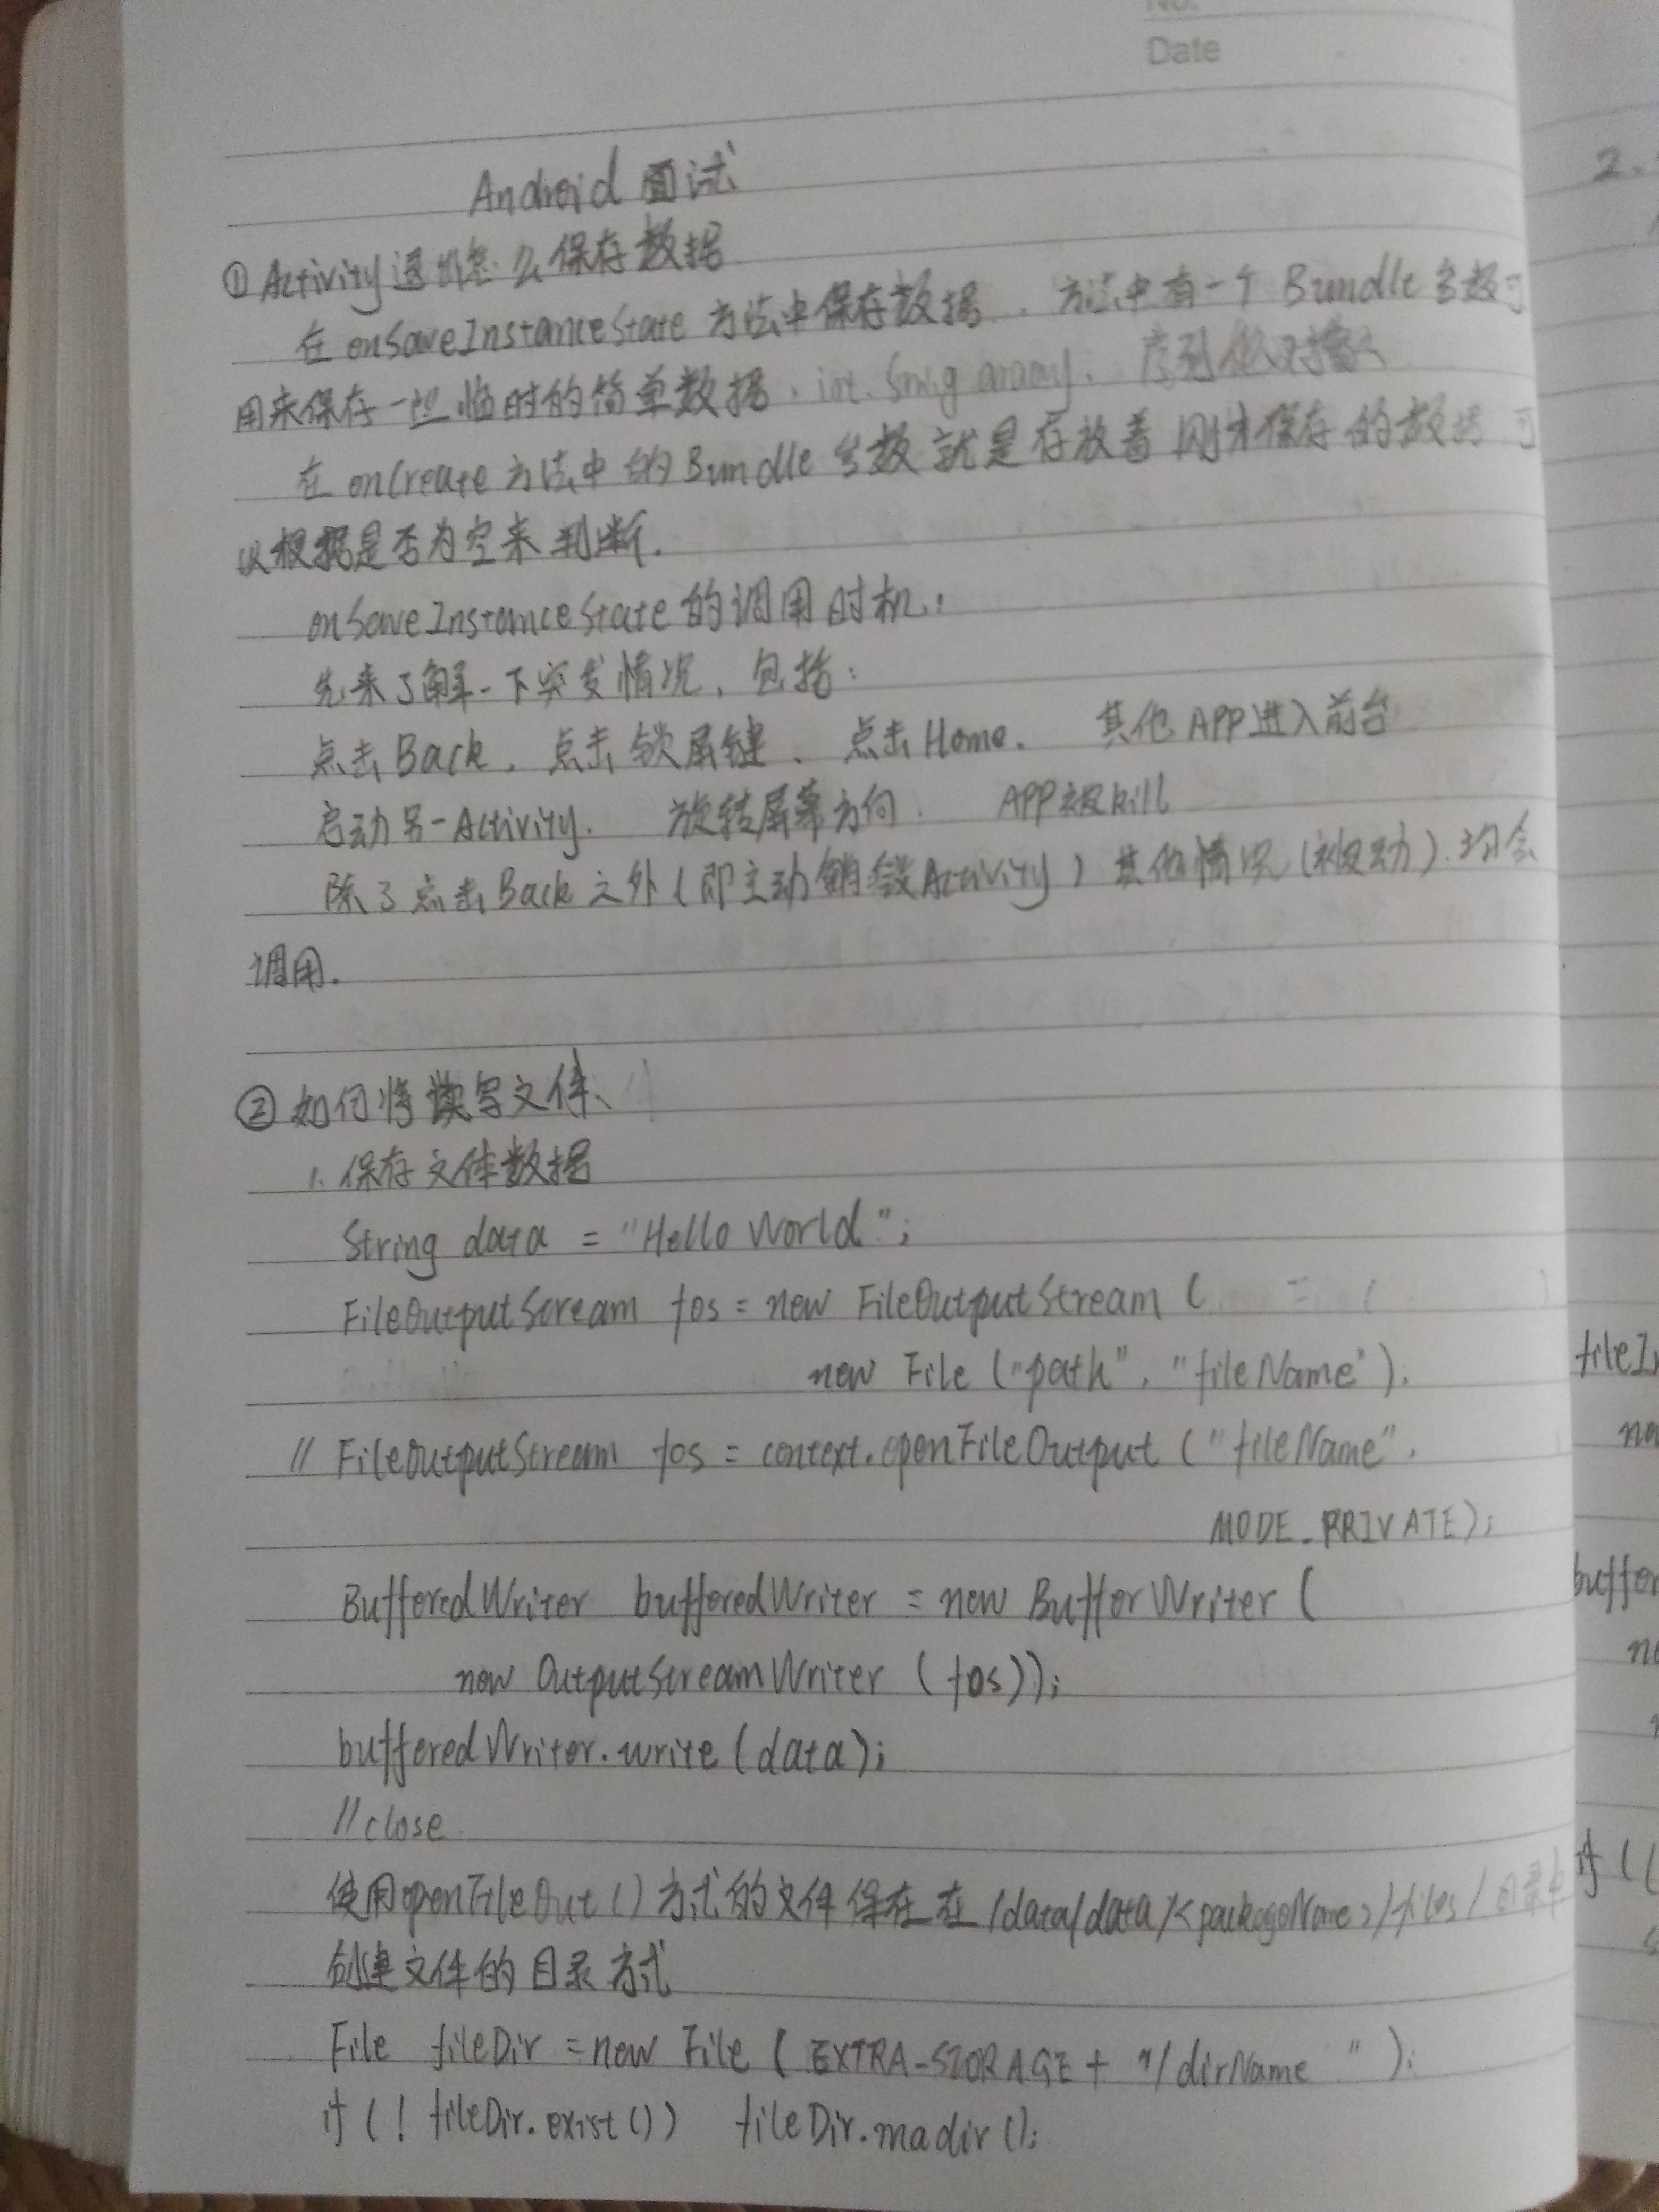 No.
Date
Android 面试
① Activity退出怎么保存数据
在 onSaveInstanceState 方法中保存数据、方法中有一个 Bundle 参数可
用来保存一些临时的简单数据，int. array、序列化对象
在 onCreate 方法中的 Bundle 参数就是存放着刚才保存的数据 可
以根据是否为空来判断.
onSaveInstanceState 的调用时机：
先来了解一下突发情况，包括：
点击 Back，点击锁屏键、点击 Home、其他 APP 进入前台
启动另一Activity、旋转屏幕方向、APP被kill
除了点击Back之外(即主动销毁Activity)其他情况(被动)均会
调用.
② 如何将读写文件、
1. 保存文件数据
String data = "Hello World";
FileOutputStream fos = new FileOutputStream (
new File ("path", "fileName").
// FileOutputStream fos = context.openFileOutput ("fileName",
MODE_PRIVATE);
BufferedWriter bufferedWriter = new BufferWriter (
new OutputStreamWriter (fos));
bufferedWriter.write (data);
//close
使用openFileOut()方式的文件保存在在/data/data/<packageName>/files/目录中
创建文件的目录方式
File fileDir = new File ( EXTRA-STORAGE + "/dirName " );
if (! fileDir.exist()) fileDir.madir();
2.
fileI
if ((